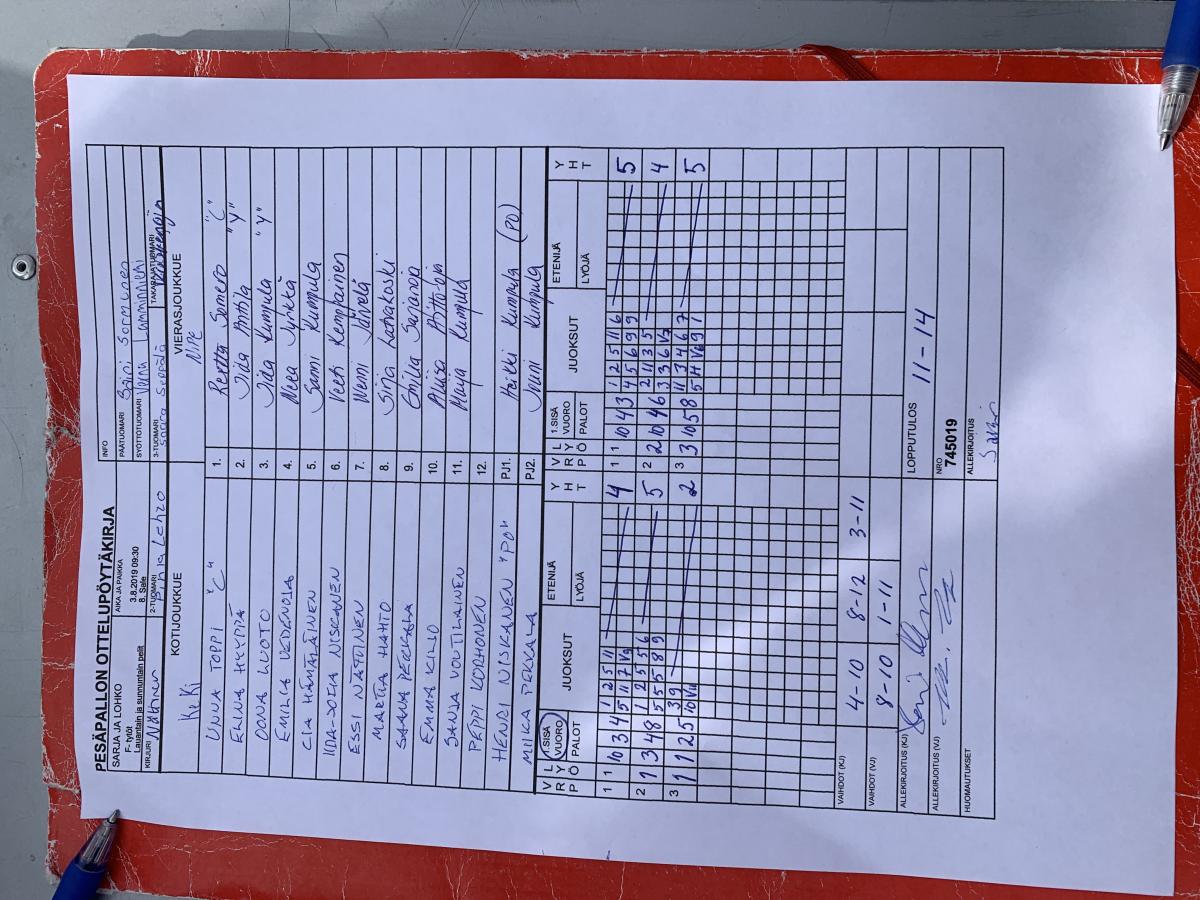 PESÄPALLON OTTELUPÖYTÄKIRJA
SARJA JA LOHKO
F- tytöt
Lauantain ja sunnuntain pelit
AIKA JA PAIKKA
3.8.2019 09:30
8. Sale
INFO
PÄÄTUOMARI Saini Sormunen
SYÖTTÖTUOMARI Lamminniemi
KIRJURI Nättinen
2-TUOMARI Pinja Lehto
3-TUOMARI Seppälä
TAKARAJATUOMARI
KOTIJOUKKUE
KeKi
VIERASJOUKKUE
NiPe
UNNA TOPPI "C" 1. Reetta Somero "C"
ERINA HYYPPÄ 2. Iida Anttila "Y"
OONA LUOTO 3. Iida Kumpula "Y"
EMILIA VEDENOJA 4. Neea Jyrkkä
CIA HÄMÄLÄINEN 5. Sanni Kumpula
IIDA-SOFIA NISKANEN 6. Veeti Kemppainen
ESSI NÄTTINEN 7. Venni Järvelä
MARTTA HAHTO 8. Siina Latvakoski
SAANA PEKKALA 9. Emilia Sarjanoja
EMMA KILLO 10.
SANJA VOUTILAINEN 11. Maija Kumpula
PEPPI KORHONEN 12.
HENRI NISKANEN "PO" PJ1. Heikki Kumpula (PO)
MIIKA PEKKALA PJ2. Jouni Kumpula
V R P L Y Ö 1.SISÄ VUORO PALOT JUOKSUT ETENIJÄ LYÖJÄ Y H T V R P L Y Ö 1.SISÄ VUORO PALOT JUOKSUT ETENIJÄ LYÖJÄ Y H T
1 1 10 3 4 1 2 5 11 4 1 1 10 4 3 1 2 5 11 6 5
5 11 7 V9 4 5 6 9 9
2 1 3 4 8 1 2 5 5 6 5 2 2 10 4 6 2 11 3 5 4
5 5 8 9 3 3 6 V7
3 1 1 2 5 3 9 2 3 3 10 5 8 11 3 4 6 7 5
10 V11 5 H V6 9 1
VAIHDOT (KJ) 4-10 8-12 3-11
VAIHDOT (VJ) 8-10 1-11
ALLEKIRJOITUS (KJ)
LOPPUTULOS 11-14
ALLEKIRJOITUS (VJ)
NRO
745019
HUOMAUTUKSET
ALLEKIRJOITUS